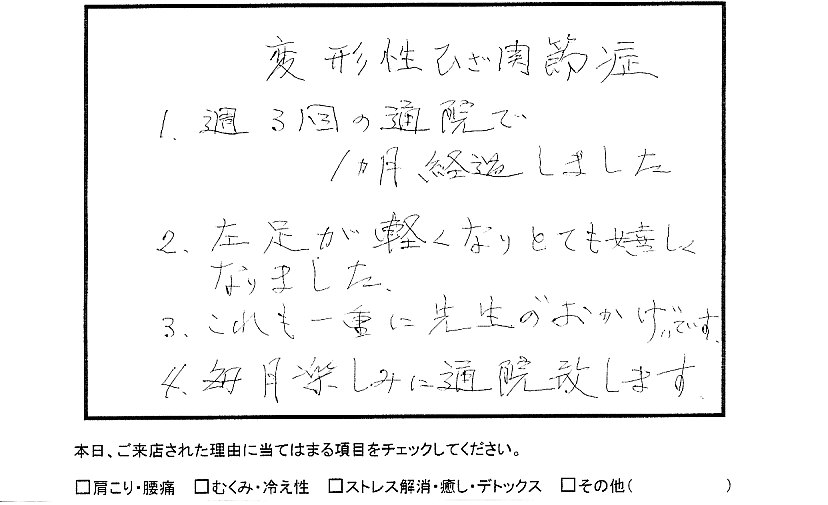 変形性ひざ関節症
1. 週3回の通院で
1カ月経過しました
2. 左足が軽くなりとても嬉しく
なりました.
3. これも一重に先生のおかげです.
4. 毎月楽しみに通院致します.
本日、ご来店された理由に当てはまる項目をチェックしてください。
□肩こり・腰痛 □むくみ・冷え性 □ストレス解消・癒し・デトックス □その他( )